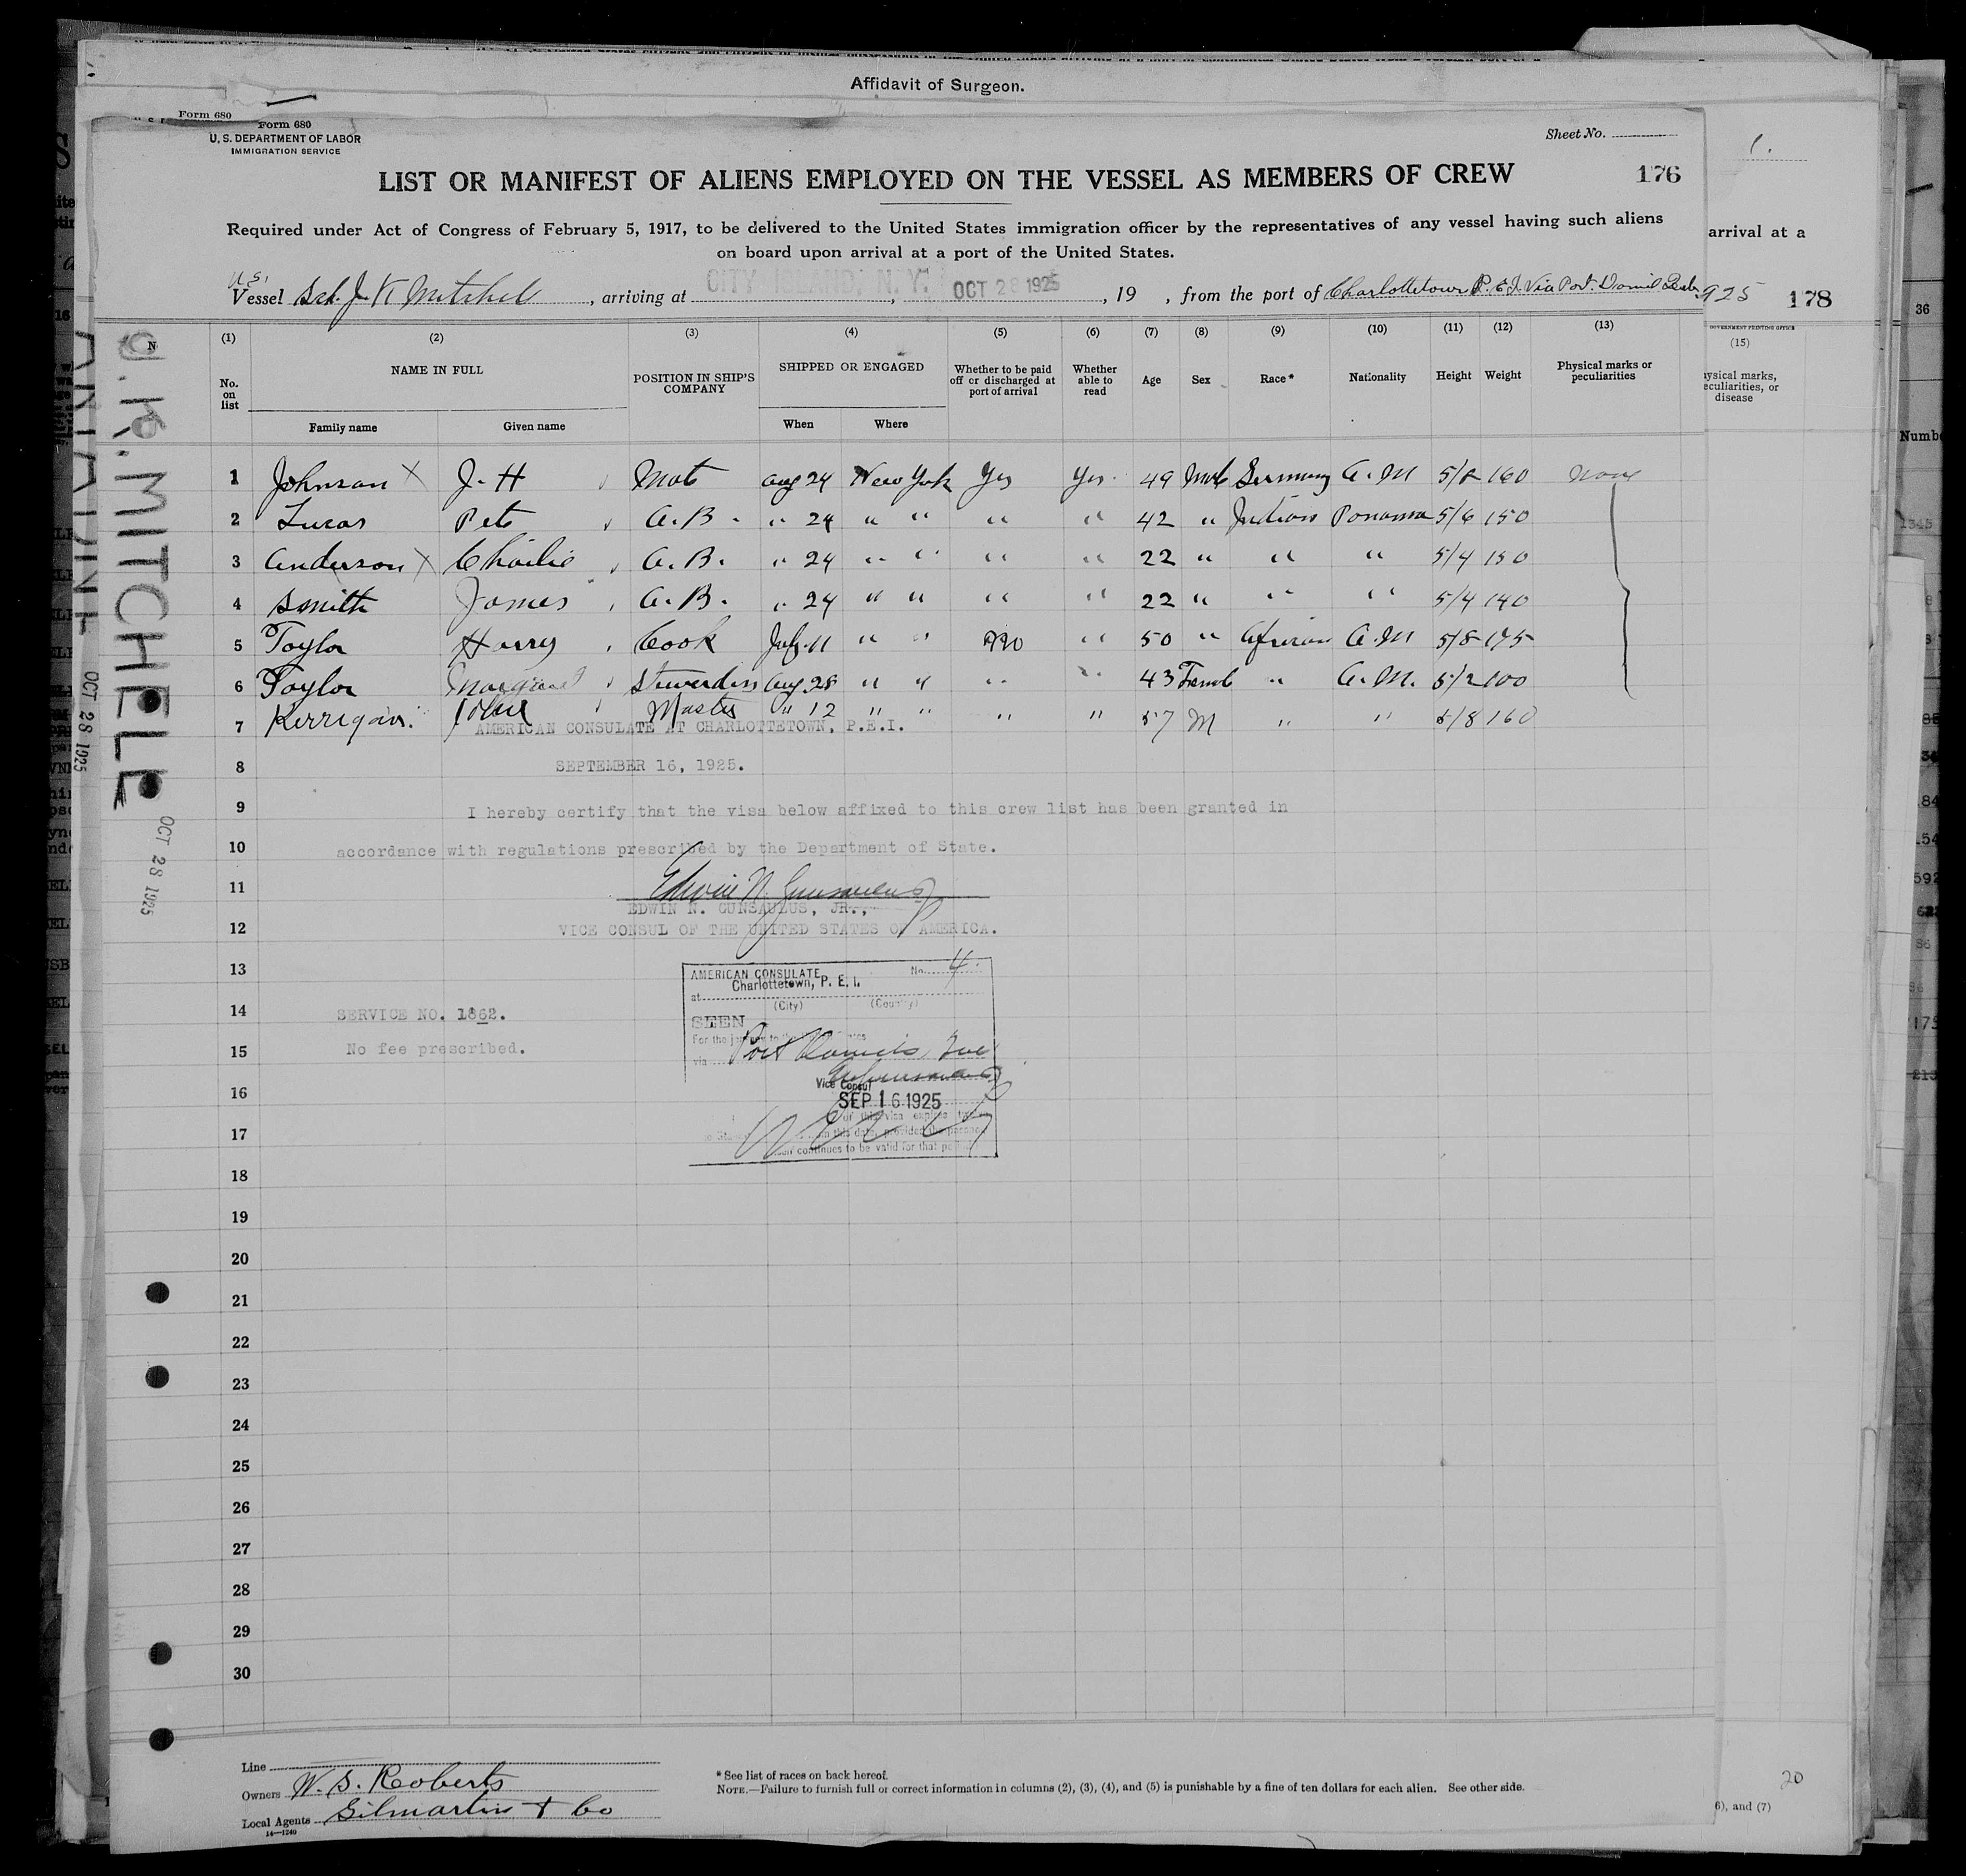 Affidavit of Surgeon.
Form 680
Form 680
U. S. DEPARTMENT OF LABOR
IMMIGRATION SERVICE
Sheet No.
LIST OR MANIFEST OF ALIENS EMPLOYED ON THE VESSEL AS MEMBERS OF CREW
176
Required under Act of Congress of February 5, 1917, to be delivered to the United States immigration officer by the representatives of any vessel having such aliens
on board upon arrival at a port of the United States.
arrival at a
U.S.
Vessel Sch. J K Mitchel, arriving at CITY ISLAND, N. Y., OCT 28 1925, 19 , from the port of Charlottetown P. E. I. Via Port Daniel
925 178
36
(1) (2) (3) (4) (5) (6) (7) (8) (9) (10) (11) (12) (13)
(15)
No. on list
NAME IN FULL
Family name Given name
POSITION IN SHIP'S COMPANY
SHIPPED OR ENGAGED
When Where
Whether to be paid off or discharged at port of arrival
Whether able to read
Age Sex Race* Nationality Height Weight
Physical marks or peculiarities
ysical marks, eculiarities, or disease
1 Johnson X J. H Mate Aug 24 New York Yes Yes 49 Male Germany A. M 5/8 160 None
2 Lucas Pete A. B. " 24 " " " " 42 " Indian Panama 5/6 150
3 Anderson X Charlie A. B. " 24 " " " " 22 " " " 5/4 150
4 Smith James A. B. " 24 " " " " 22 " " " 5/4 140
5 Taylor Harry Cook July 11 " " no " 50 " African A. M 5/8 175
6 Taylor Margaret Stewardess Aug 28 " " " " 43 Female " A. M. 5/2 100
7 Kerrigan John Master " 12 " " " " 57 M " " 5/8 160
AMERICAN CONSULATE AT CHARLOTTETOWN, P.E.I.
8 SEPTEMBER 16, 1925.
9 I hereby certify that the visa below affixed to this crew list has been granted in
10 accordance with regulations prescribed by the Department of State.
11 Edwin N. Gunsaulus Jr
EDWIN N. GUNSAULUS, JR.,
12 VICE CONSUL OF THE UNITED STATES OF AMERICA.
13 AMERICAN CONSULATE No. 4
at Charlottetown, P. E. I.
(City) (Country)
14 SERVICE NO. 1862.
SEEN
15 No fee prescribed.
via Port Daniels, Que
16 Vice Consul
SEP 16 1925
17
continues to be valid for that
18
19
20
21
22
23
24
25
26
27
28
29
30
J.K. MITCHELL
OCT 28 1925
OCT 28 1925
Line
Owners W. S. Roberts
Local Agents Gilmartin & Co
14—1240
* See list of races on back hereof.
NOTE.—Failure to furnish full or correct information in columns (2), (3), (4), and (5) is punishable by a fine of ten dollars for each alien. See other side.
20
6), and (7)